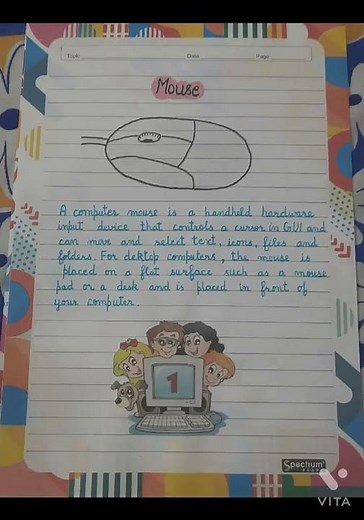 Topic Date Page
Mouse
A computer mouse is a handheld hardware
input device that controls a cursor in GUI and
can move and select text, icons, files and
folders. For dektop computers, the mouse is
placed on a flat surface such as a mouse
pad or a desk and is placed in front of
your computer.
1
Spectrum
VITA